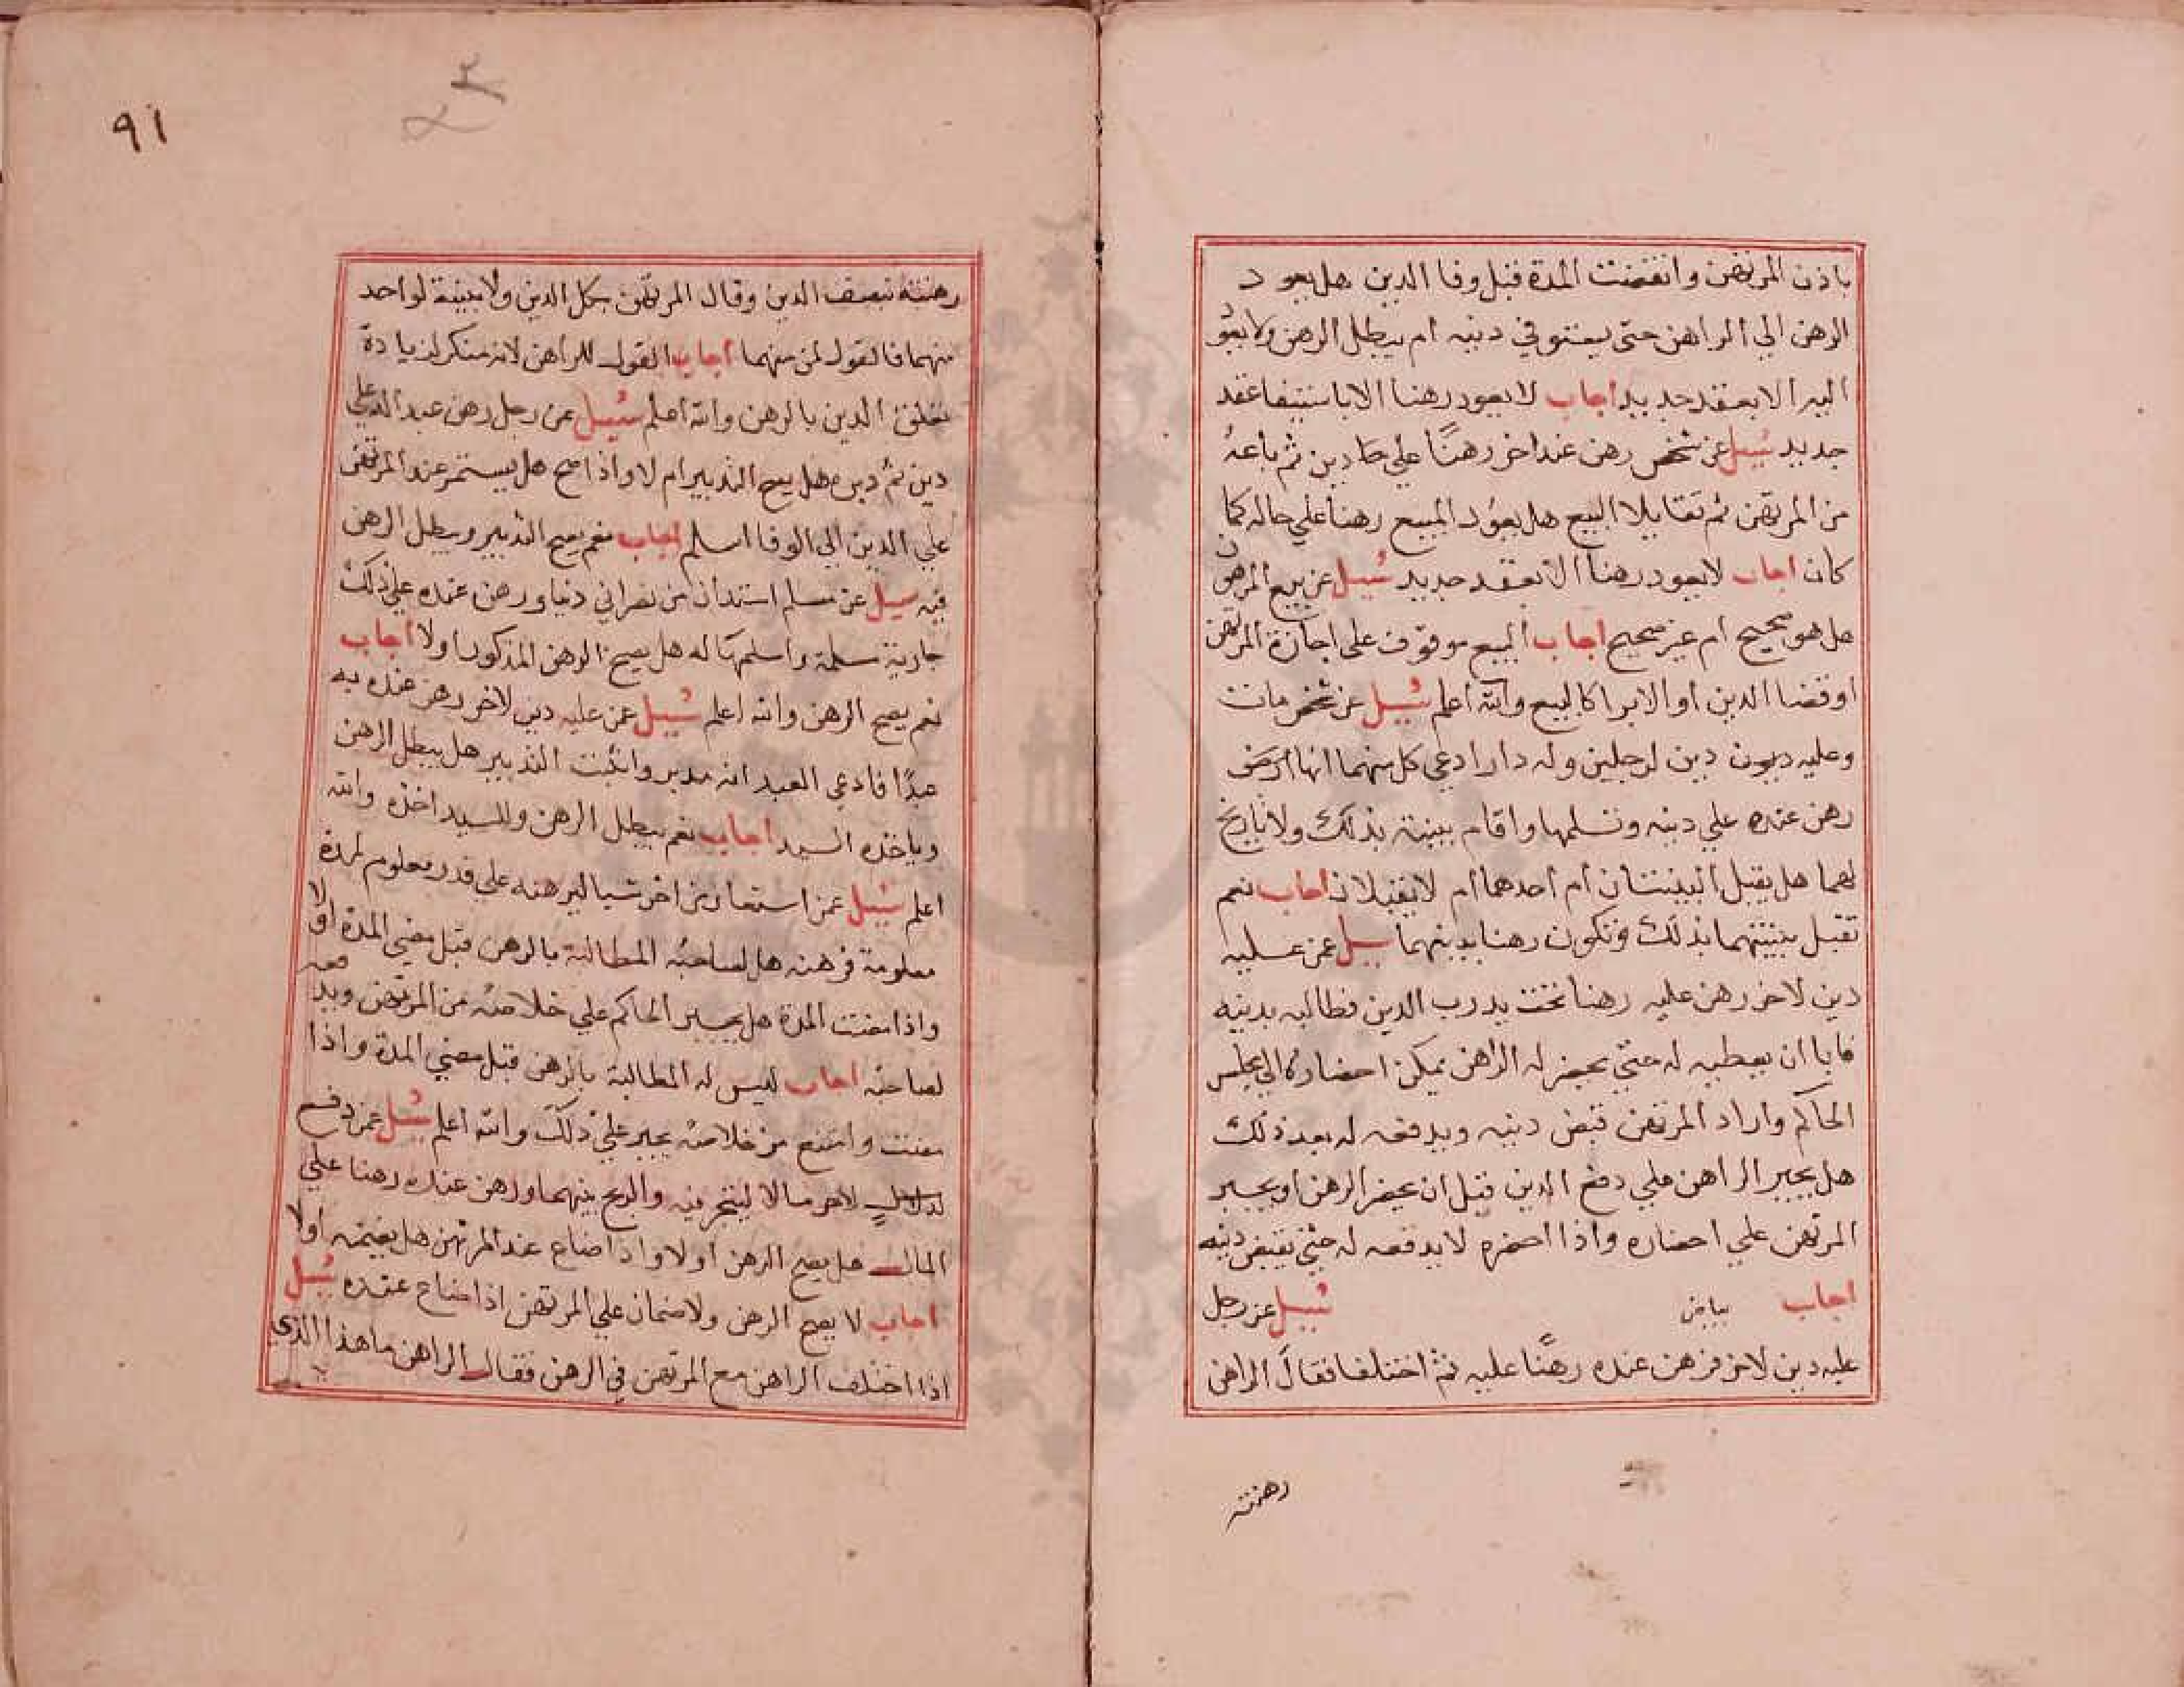 باذن المرتهن وانقضت المدة قبل وفا الدين هل يعود
الرهن الي الراهن حتى يستوفي دينه ام يبطل الرهن ولا يعود
اليه الا بعقد جديد اجاب لا يعود رهنا الا باستيفا عقد
جديد سُيل عن شخص رهن عند اخر رهنًا علي ما دين ثم باعهُ
من المرتهن ثم تقايلا البيع هل يعود المبيع رهنا علي حاله كما
كان اجاب لا يعود رهنا الا بعقد جديد سُيل عن بيع المرهون
هل هو صحيح ام غير صحيح اجاب البيع موقوف على اجازة المرتهن
او قضا الدين او الابرا كالبيع والله اعلم سُيل عن شخص مات
وعليه ديون دين لرجلين وله دار ادعي كل منهما انها
رهن عنده علي دينه وتسلمها واقام ببينة بذلك ولا تاريخ
لهما هل يقبل البينتان ام احدهما ام لا يقبلان اجاب نعم
تقبل بينتهما بذلك وتكون رهنا بدينهما سيل عمن عليه
دين لاخر رهن عليه رهنا تحت يد رب الدين فطالبه بدينه
فابا ان يعطيه له حتى يحضر له الراهن يمكن احضاره الي مجلس
الحاكم واراد المرتهن قبض دينه ويدفعه له بعد ذلك
هل يجبر الراهن علي دفع الدين قبل ان يحضر الرهن او يجبر
المرتهن علي احضاره واذا احضره لا يدفعه له حتى يقبض دينه
اجاب بياض سُيل عن رجل
عليه دين لاخر فرهن عنده رهنًا عليه ثم اختلفا فقال الراهن
رهنته
٩١
رهنته بنصف الدين وقال المرتهن بكل الدين ولا بينة لواحد
منهما فالقول لمن منهما اجاب القول للراهن لانه منكر لزيادة
تعلق الدين بالرهن والله اعلم سُيل عن رجل رهن عبدا له علي
دين ثم دبره هل يصح التدبير ام لا واذا صح هل يستمر عند المرتهن
علي الدين الي الوفا اسلم اجاب نعم يصح التدبير ويبطل الرهن
فيه سيل عن مسلم استدان من نصراني دينا ورهن عنده علي ذلك
جارية مسلمة واسلمها له هل يصح الرهن المذكور اولا اجاب
نعم يصح الرهن والله اعلم سُيل عمن عليه دين لاخر رهن عنده به
عبدًا فادعي العبد انه مدبر واثبت التدبير هل يبطل الرهن
وياخذه السيد اجاب نعم يبطل الرهن وللسيد اخذه والله
اعلم سُيل عمن استعار من اخر شيا ليرهنه علي قدر معلوم لمدة
معلومة فرهنه هل لصاحبه المطالبة بالرهن قبل مضي المدة اولا
واذا مضت المدة هل يجبر الحاكم علي خلاصه من المرتهن ويدفعه
لصاحبه اجاب ليس له المطالبة بالرهن قبل مضي المدة واذا
مضت وامتنع من خلاصه يجبر علي ذلك والله اعلم سُيل عمن دفع
لاخر مالا ليتجر فيه والربح بينهما ورهن عنده رهنا علي
المال هل يصح الرهن او لا واذا ضاع عند المرتهن هل يضمنه اولا
اجاب لا يصح الرهن ولا ضمان علي المرتهن اذا ضاع عنده سُيل
اذا اختلف الراهن مع المرتهن في الرهن فقال الراهن ما هذا الذي